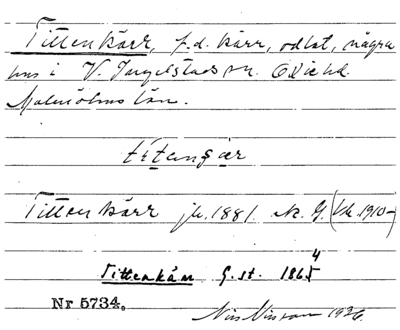 Tittenkärr, f.d. kärr, odlat, några
hus i V. Ingelstads sn. Oxie hd.
Malmöhus län.
titengär
Tittenkärr jb. 1881. ek. G. (bl. 1910-)
Tittenkärr G. st. 1865 4
Nr 5734.
Nils Nilsson 1926.